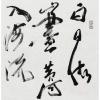 白日依
山盡黃河
入海流